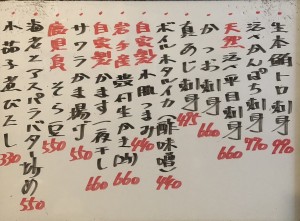 生本鮪トロ刺身 990
活〆かんぱち刺身 770
天然 活〆平目刺身 660
かつお刺身 660
真あじ刺身 495
ボイルホタルイカ(酢味噌) 440
自家製 小肌つまみ 440
岩手産 殻付生かき(1ヶ) 660
自家製 かます一夜干し 660
サワラかま揚げ 550
鹿児島 そら豆 550
海老とアスパラバター炒め 550
小茄子煮びたし 330